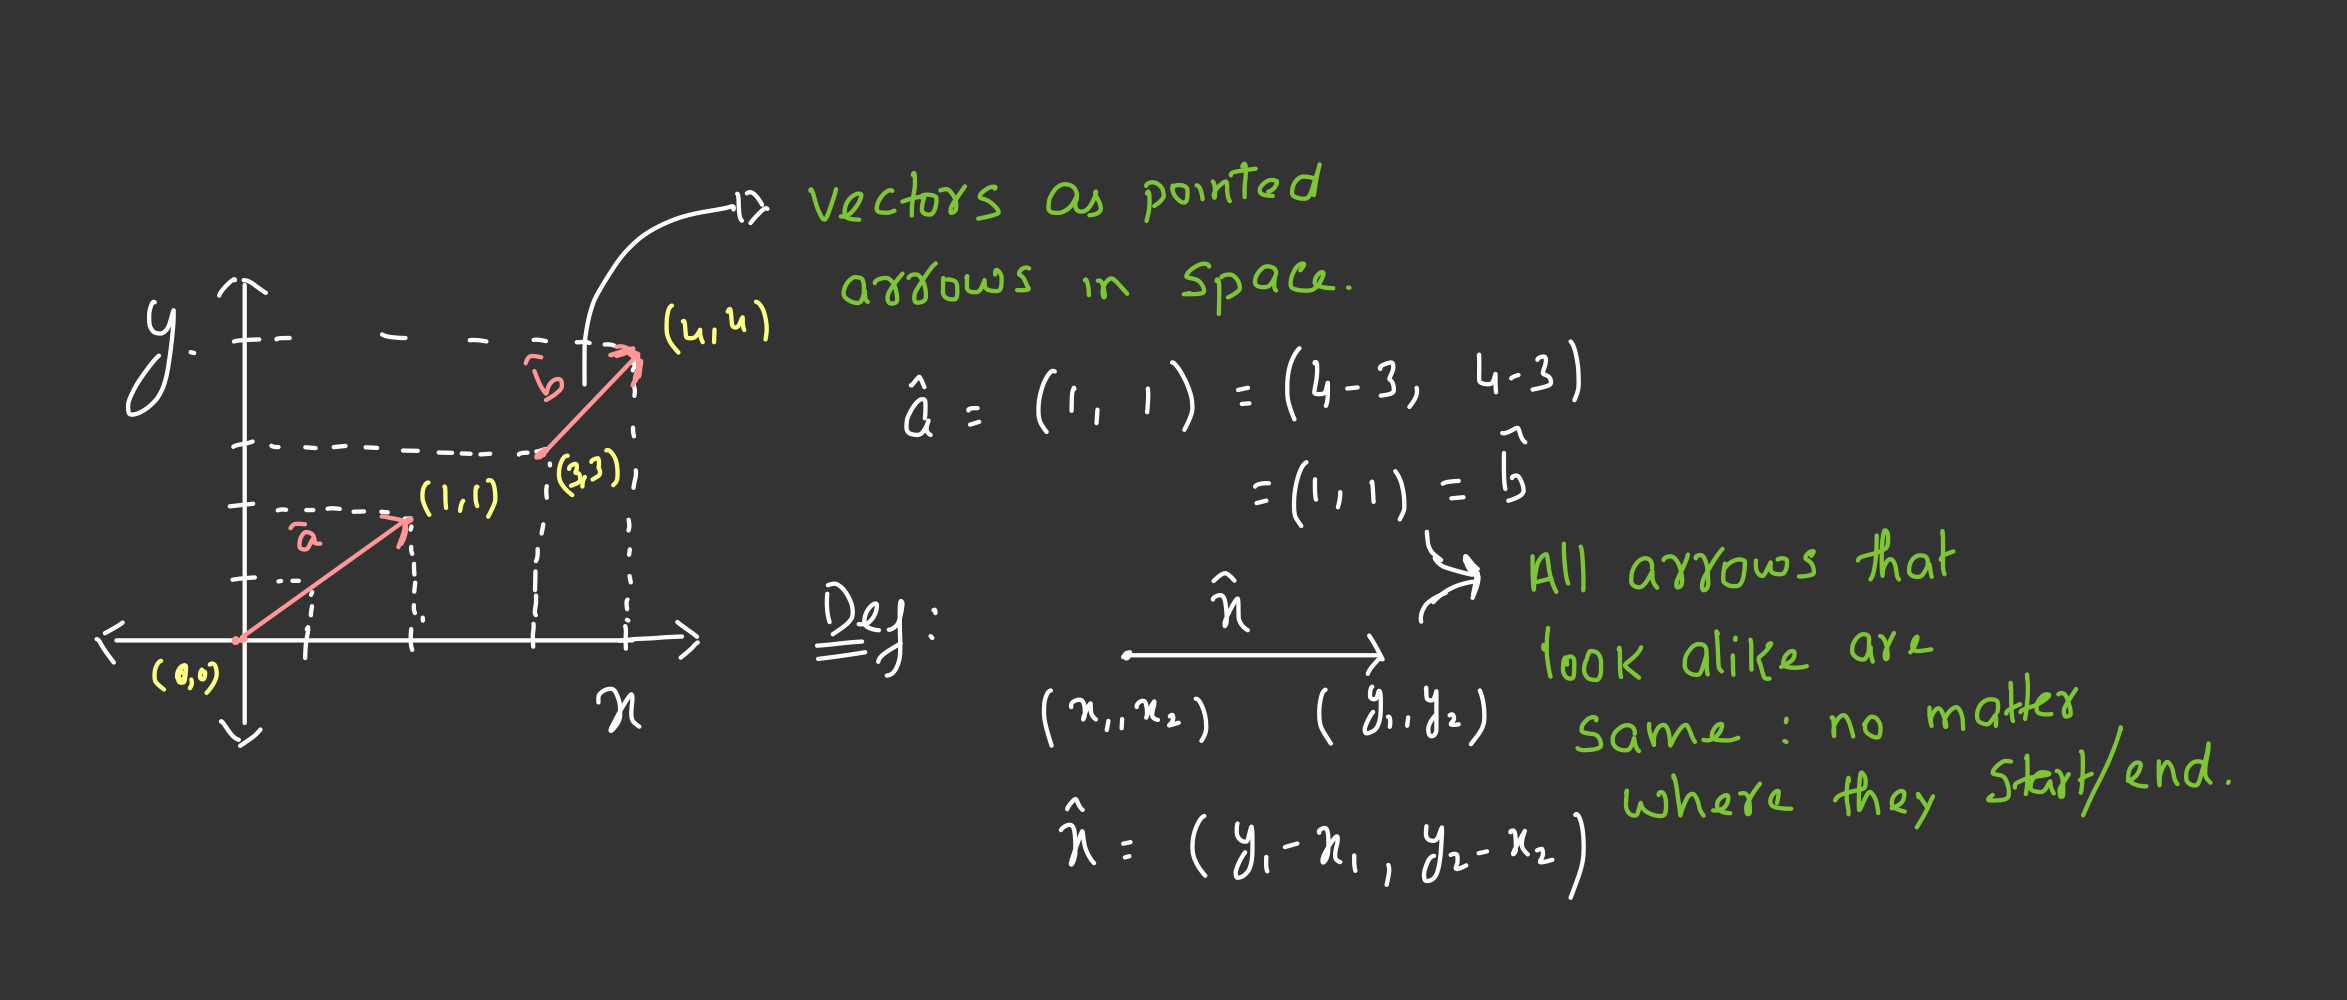 y
x
(0,0)
a
(1,1)
b
(3,3)
(4,4)
vectors as pointed
arrows in space.
â = (1, 1) = (4-3, 4-3)
= (1, 1) = b̂
All arrows that
look alike are
same : no matter
where they start/end.
Def :
x̂
(x₁, x₂) (y₁, y₂)
x̂ = (y₁-x₁, y₂-x₂)